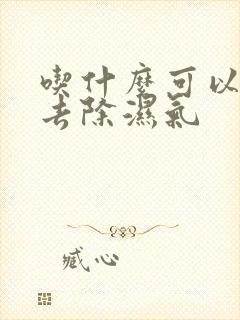 喫什麼可以
去除濕氣
臧心